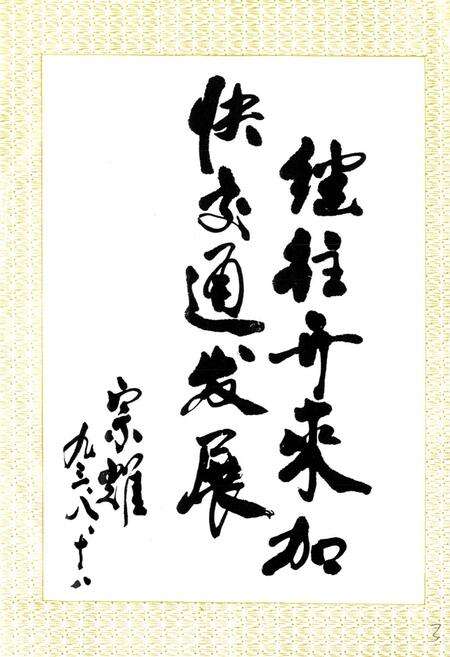 继往开来加
快交通发展
宗耀
九三.八.十八
3